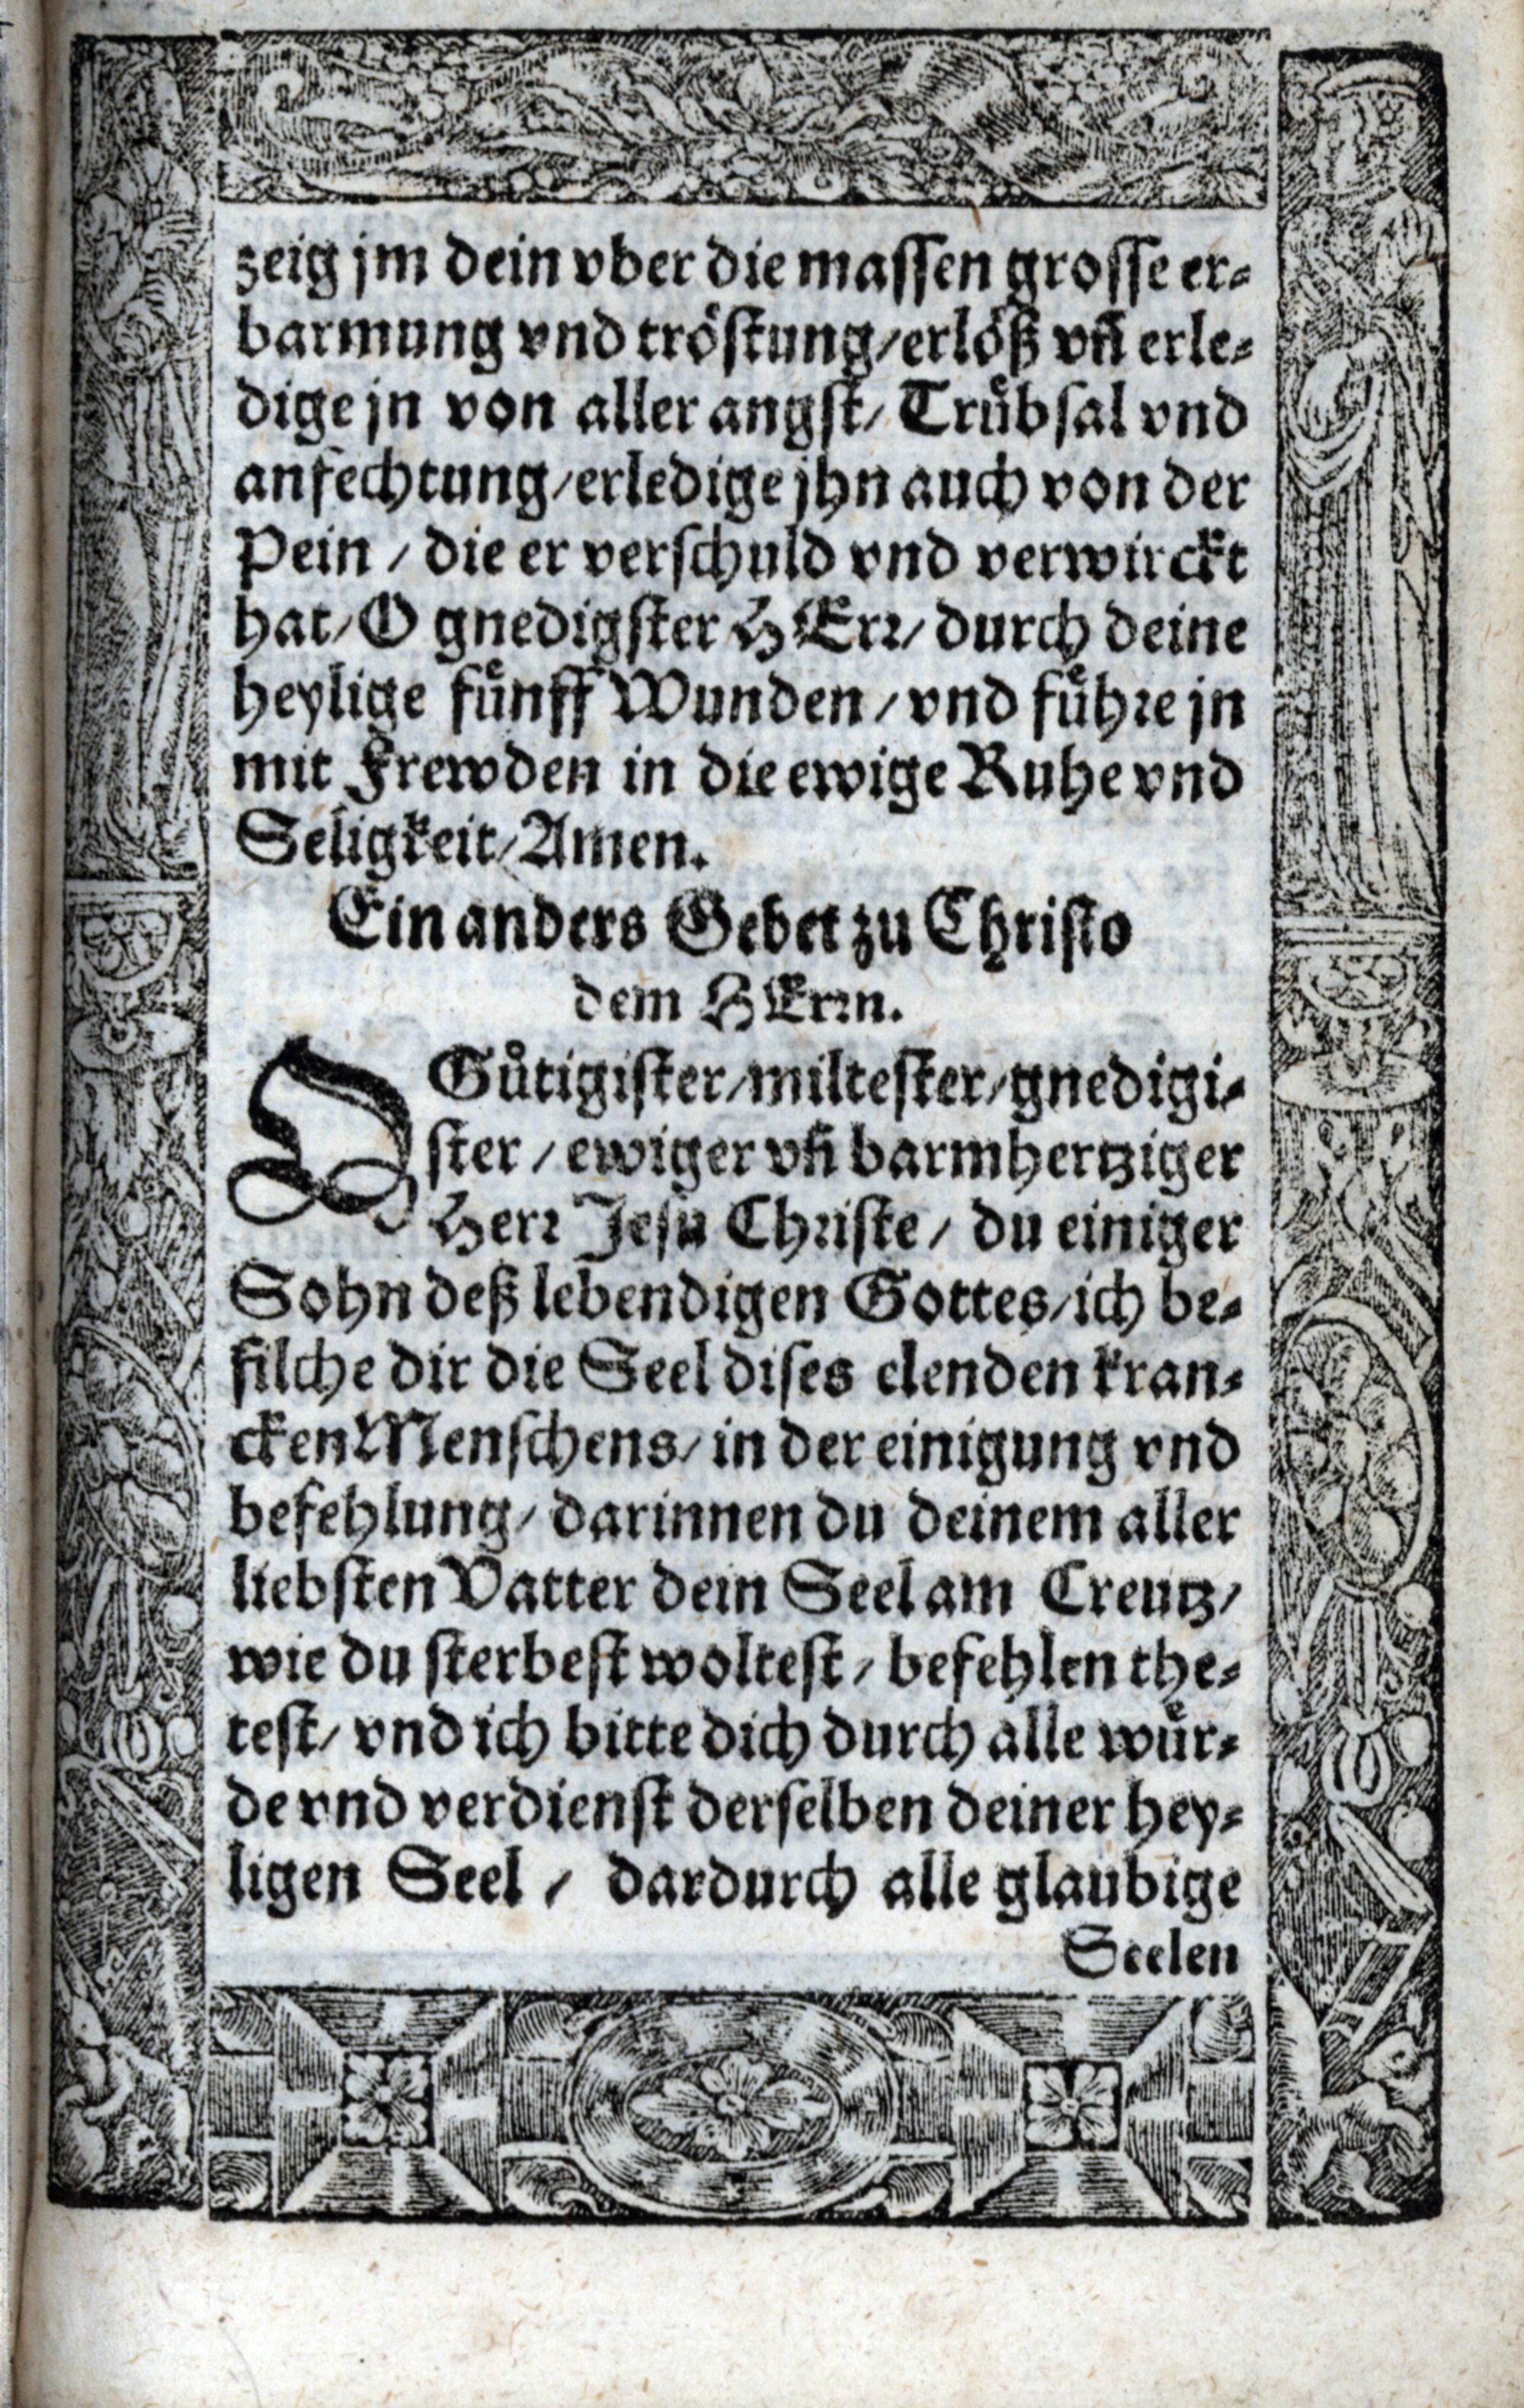 zeig jm dein vber die massen grosse er-
barmung vnd tröstung/erlöß vñ erle-
dige jn von aller angst/ Trübsal vnd
anfechtung/erledige jhn auch von der
Pein / die er verschuld vnd verwirckt
hat/ O gnedigster HErr/ durch deine
heylige fünff Wunden / vnd führe jn
mit Frewden in die ewige Ruhe vnd
Seligkeit/ Amen.
Ein anders Gebet zu Christo
dem HErrn.
O Gütigister/miltester/gnedigi-
ster / ewiger vñ barmhertziger
Herr Jesu Christe / du einiger
Sohn deß lebendigen Gottes/ich be-
filche dir die Seel dises elenden kran-
cken Menschens/ in der einigung vnd
befehlung/ darinnen du deinem aller
liebsten Vatter dein Seel am Creutz/
wie du sterbest woltest / befehlen the-
test/ vnd ich bitte dich durch alle wür-
de vnd verdienst derselben deiner hey-
ligen Seel / dardurch alle glaubige
Seelen